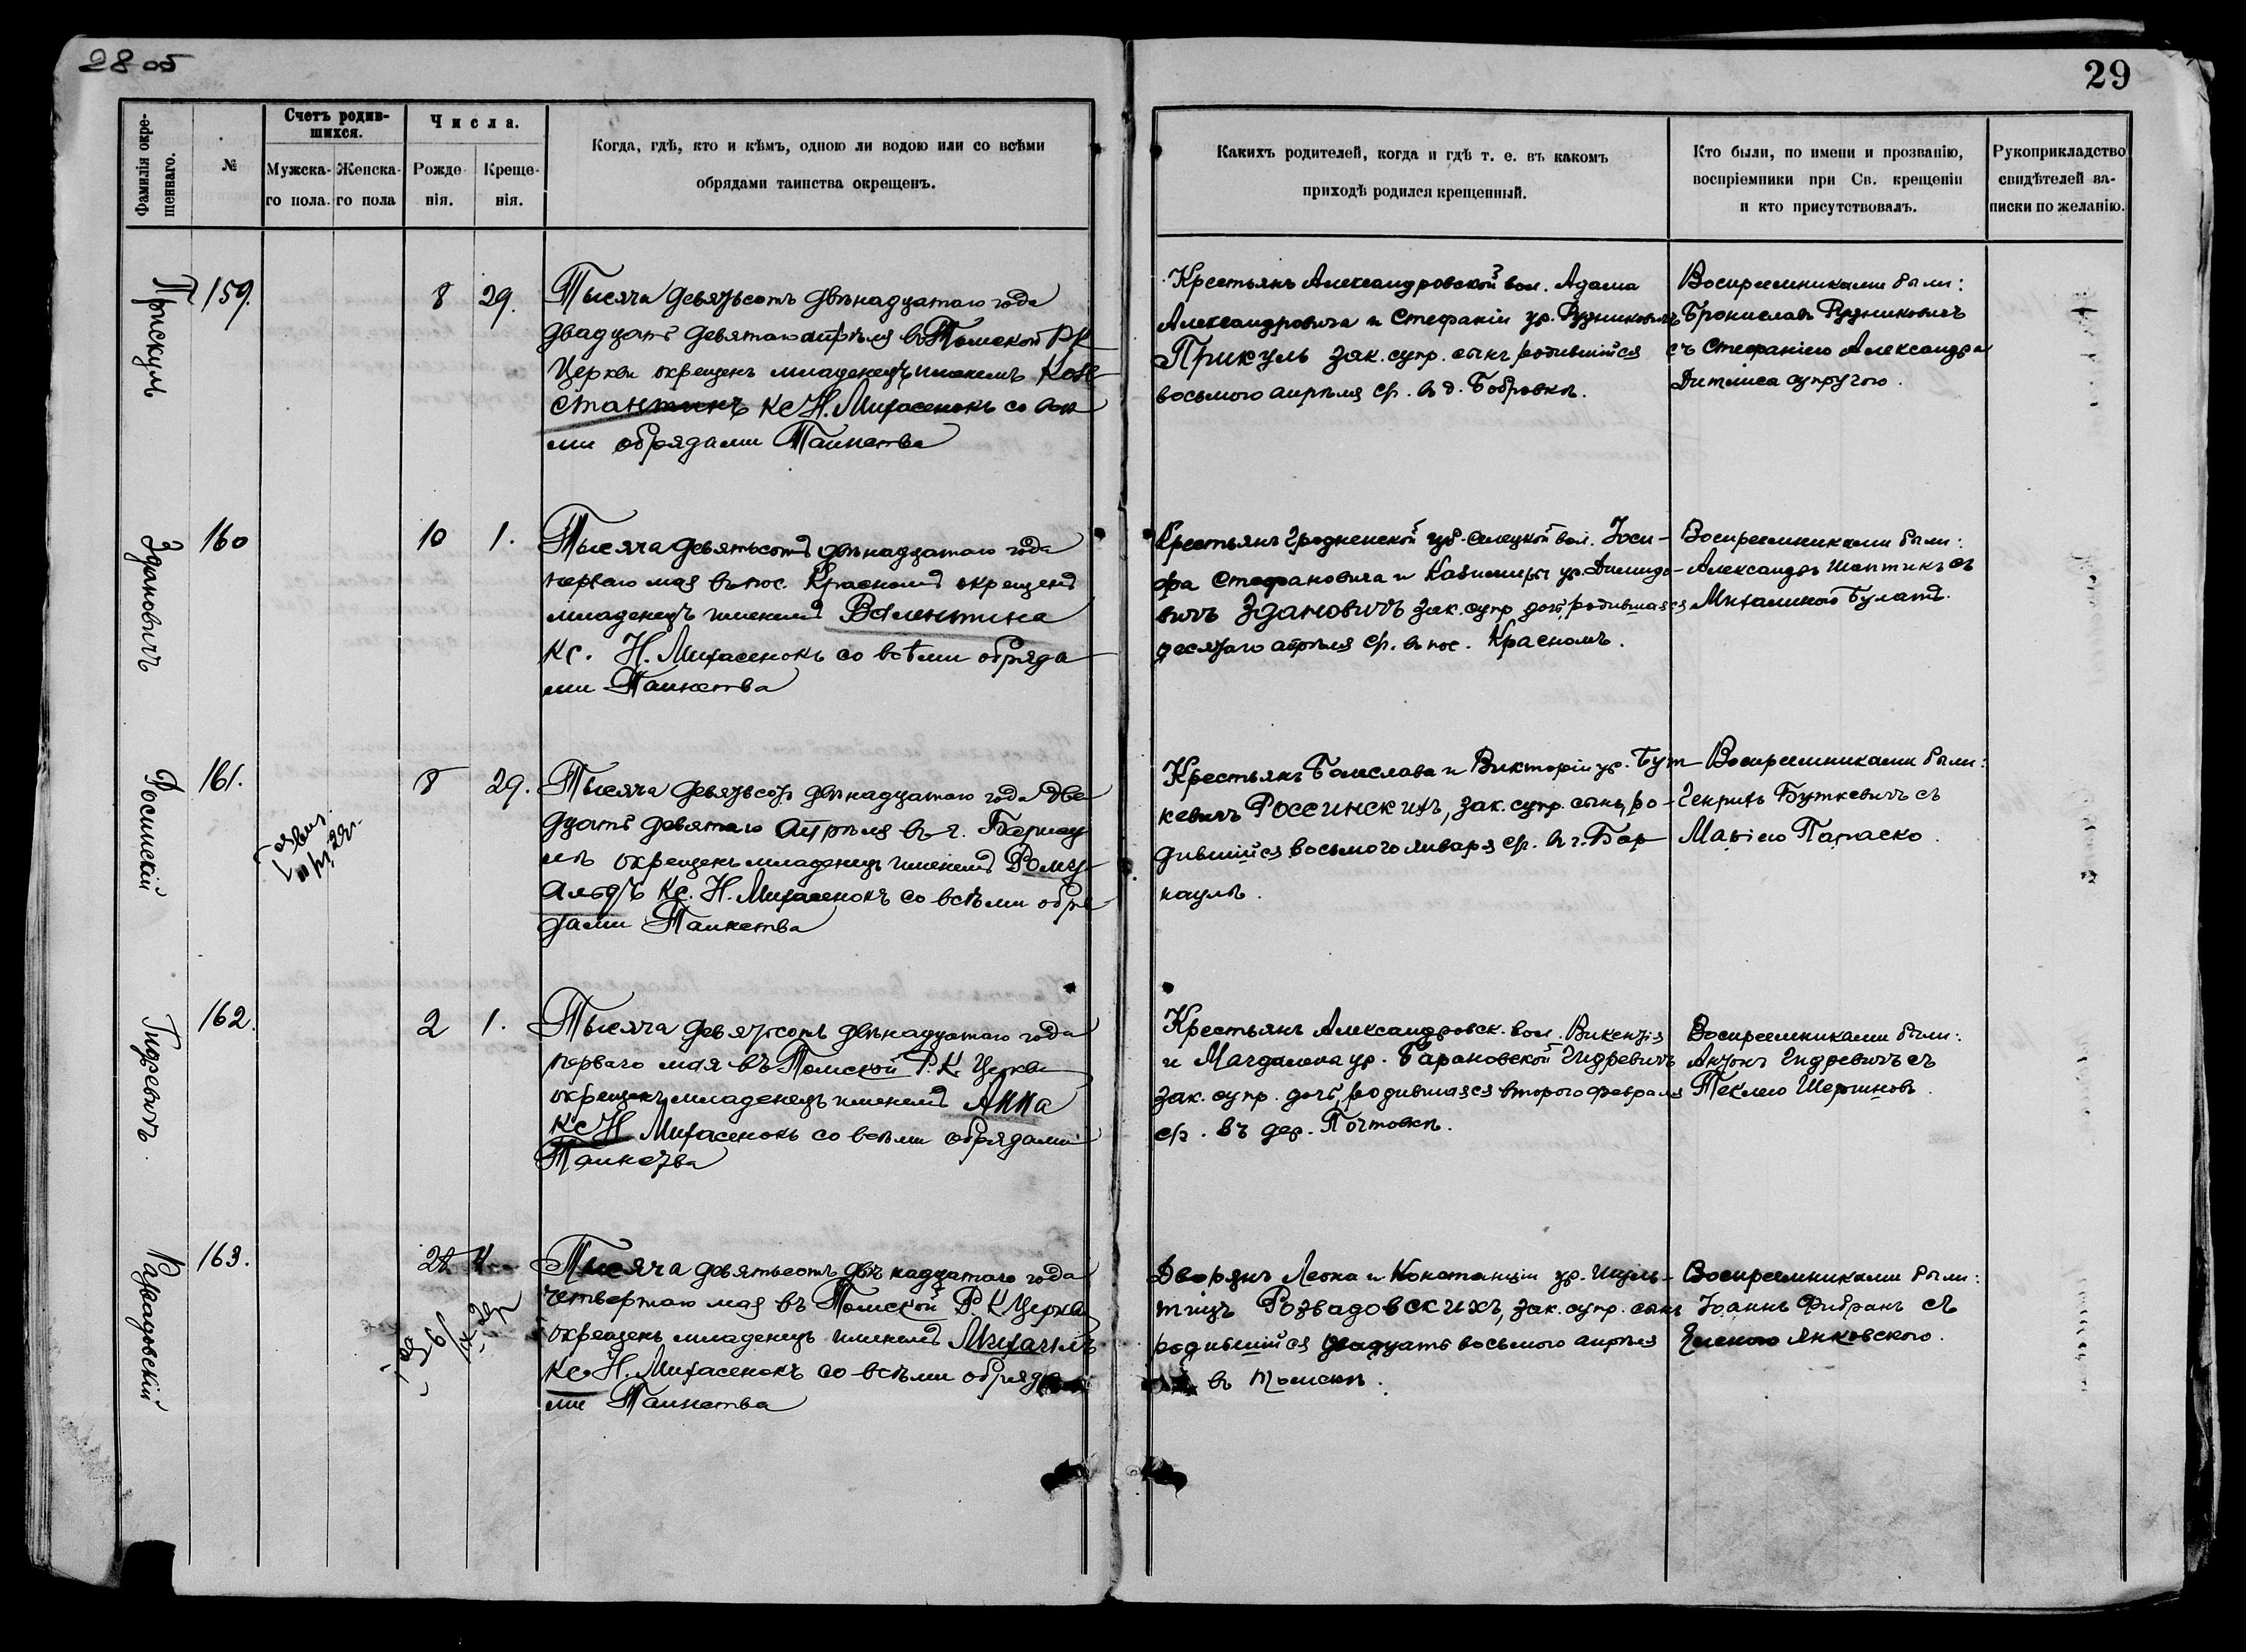 28 об
29
Фамилія окре-
щеннаго.
№
Счетъ родив-
шихся.
Мужска-
го пола.
Женска-
го пола
Числа.
Рожде-
нія.
Креще-
нія.
Когда, гдѣ, кто и кѣмъ, одною ли водою или со всѣми
обрядами таинства окрещенъ.
Какихъ родителей, когда и гдѣ т. е. въ какомъ
приходѣ родился крещенный.
Кто были, по имени и прозванію,
воспріемники при Св. крещеніи
и кто присутствовалъ.
Рукоприкладство
свидѣтелей за-
писки по желанію.
Прискуль
159.
8
29.
Тысяча девятьсотъ двѣнадцатаго года
двадцать девятаго апрѣля въ Томской РК
Церкви окрещенъ младенецъ именемъ Кон-
стантинъ Кс Н. Михасенокъ со всѣ
ми обрядами Таинства
Крестьянъ Александровской вол. Адама
Александровича и Стефаніи ур. Рудниковичъ
Прикуль зак. супр. сынъ родившійся
восьмого апрѣля ср. въ д. Бобровкѣ.
Воспреемниками были:
Брониславъ Рудниковичъ
съ Стефаніею Александра
супругою.
Здановичъ
160
10
1.
Тысяча девятьсотъ двѣнадцатаго года
перваго мая въ пос. Красномъ окрещенъ
младенецъ именемъ Валентина
Кс. Н. Михасенокъ со всѣми обряда
ми Таинства
Крестьянъ Гродненской губ. Селецкой вол. Іоси-
фа Стефановича и Казимиры ур. Димидо-
вичъ Здановичъ зак. супр. дочь, родившаяся
десятаго апрѣля ср. въ пос. Красномъ.
Воспреемниками были:
Александръ Шоптикъ съ
Михалиной Булатъ.
Росинскій
161.
8
29.
Тысяча девятьсотъ двѣнадцатаго года два
дцать девятаго Апрѣля въ г. Барнау
лѣ окрещенъ младенецъ именемъ Рому-
альдъ Кс. Н. Михасенокъ со всѣми обря
дами Таинства
Крестьянъ Болеслава и Викторіи ур. Бут-
кевичъ Россинскихъ, зак. супр. сынъ, ро-
дившійся восьмого января ср. въ г. Бар
наулѣ.
Воспреемниками были:
Генрихъ Буткевичъ съ
Маріею Параско.
Гидревичъ
162.
2
1.
Тысяча девятьсотъ двѣнадцатаго года
перваго мая въ Томской Р. К. Церкви
окрещенъ младенецъ именемъ Анна
Кс Н Михасенокъ со всѣми обрядами
Таинства
Крестьянъ Александровск. вол. Викентія
и Магдалена ур. Барановской Гидревичъ
зак. супр. дочь, родившаяся второго февраля
ср. въ дер. Почтовкѣ.
Воспреемниками были:
Антонъ Гидревичъ съ
Теклею Шершновъ.
Развадовскій
163.
28
4
Тысяча девятьсотъ двѣнадцатаго года
четвертаго мая въ Томской Р. К Церкви
окрещенъ младенецъ именемъ Михаилъ
Кс Н. Михасенокъ со всѣми обряда
ми Таинства
Дворянъ Леона и Констанціи ур. Шуль-
тицъ Розвадовскихъ, зак. супр. сынъ
родившійся двадцать восьмого апрѣля
въ Томскѣ.
Воспреемниками были:
Іоаннъ Фибранъ съ
Еленою Янковского.